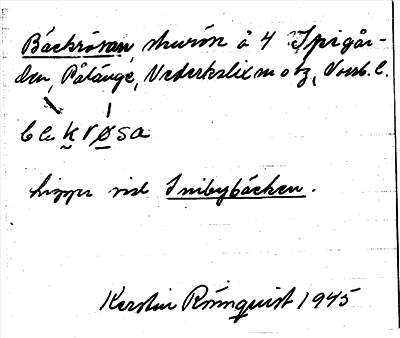 Bäckrösan, skurön å 4 Spigår-
den, Pålänge, Nederkalix m o tz, Norrb. l.
bɛkrøsa
Ligger vid Snibybäcken.
Kerstin Rönnquist 1945